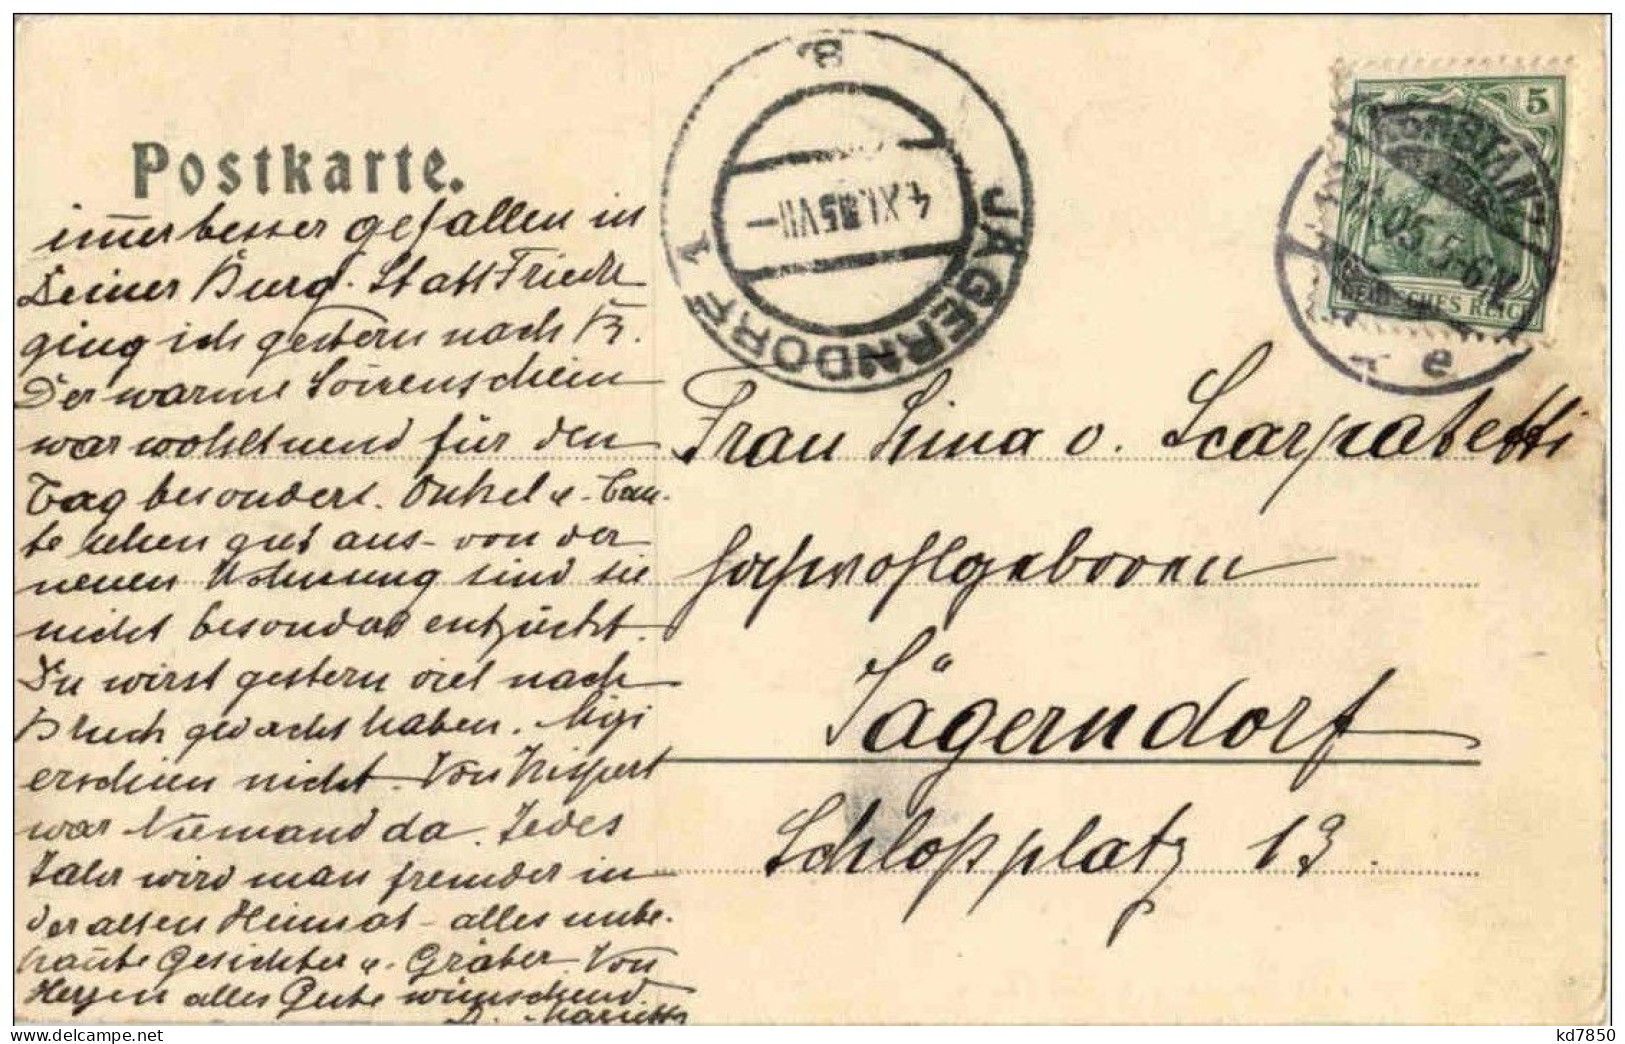 Postkarte.
immer besser gefallen in
Deiner Burg. Statt Friedh
ging ich gestern nach Kr.
Der warme Sonnenschein
war wohltuend für den
Tag besonders. Onkel u. Tan-
te sehen gut aus - von der
neuen Wohnung sind sie
nicht besonders entzückt.
Du wirst gestern viel nach
gedacht haben.
erschien nicht. Von
war Niemand da. Jedes
Jahr wird man fremder in
der alten Heimat - alles unbe-
kannte Gesichter u. Gräber. Von
Herzen alles Gute wünschend
D. Marietta
JÄGERNDORF 1
4 XI 05 VII -
8
5
KONSTANZ
11.05.5-6N
DEUTSCHES REICH
e
Frau Lina v. Scarpatetti
Hochwohlgeboren
Jägerndorf
Schloßplatz 13.
kd7850